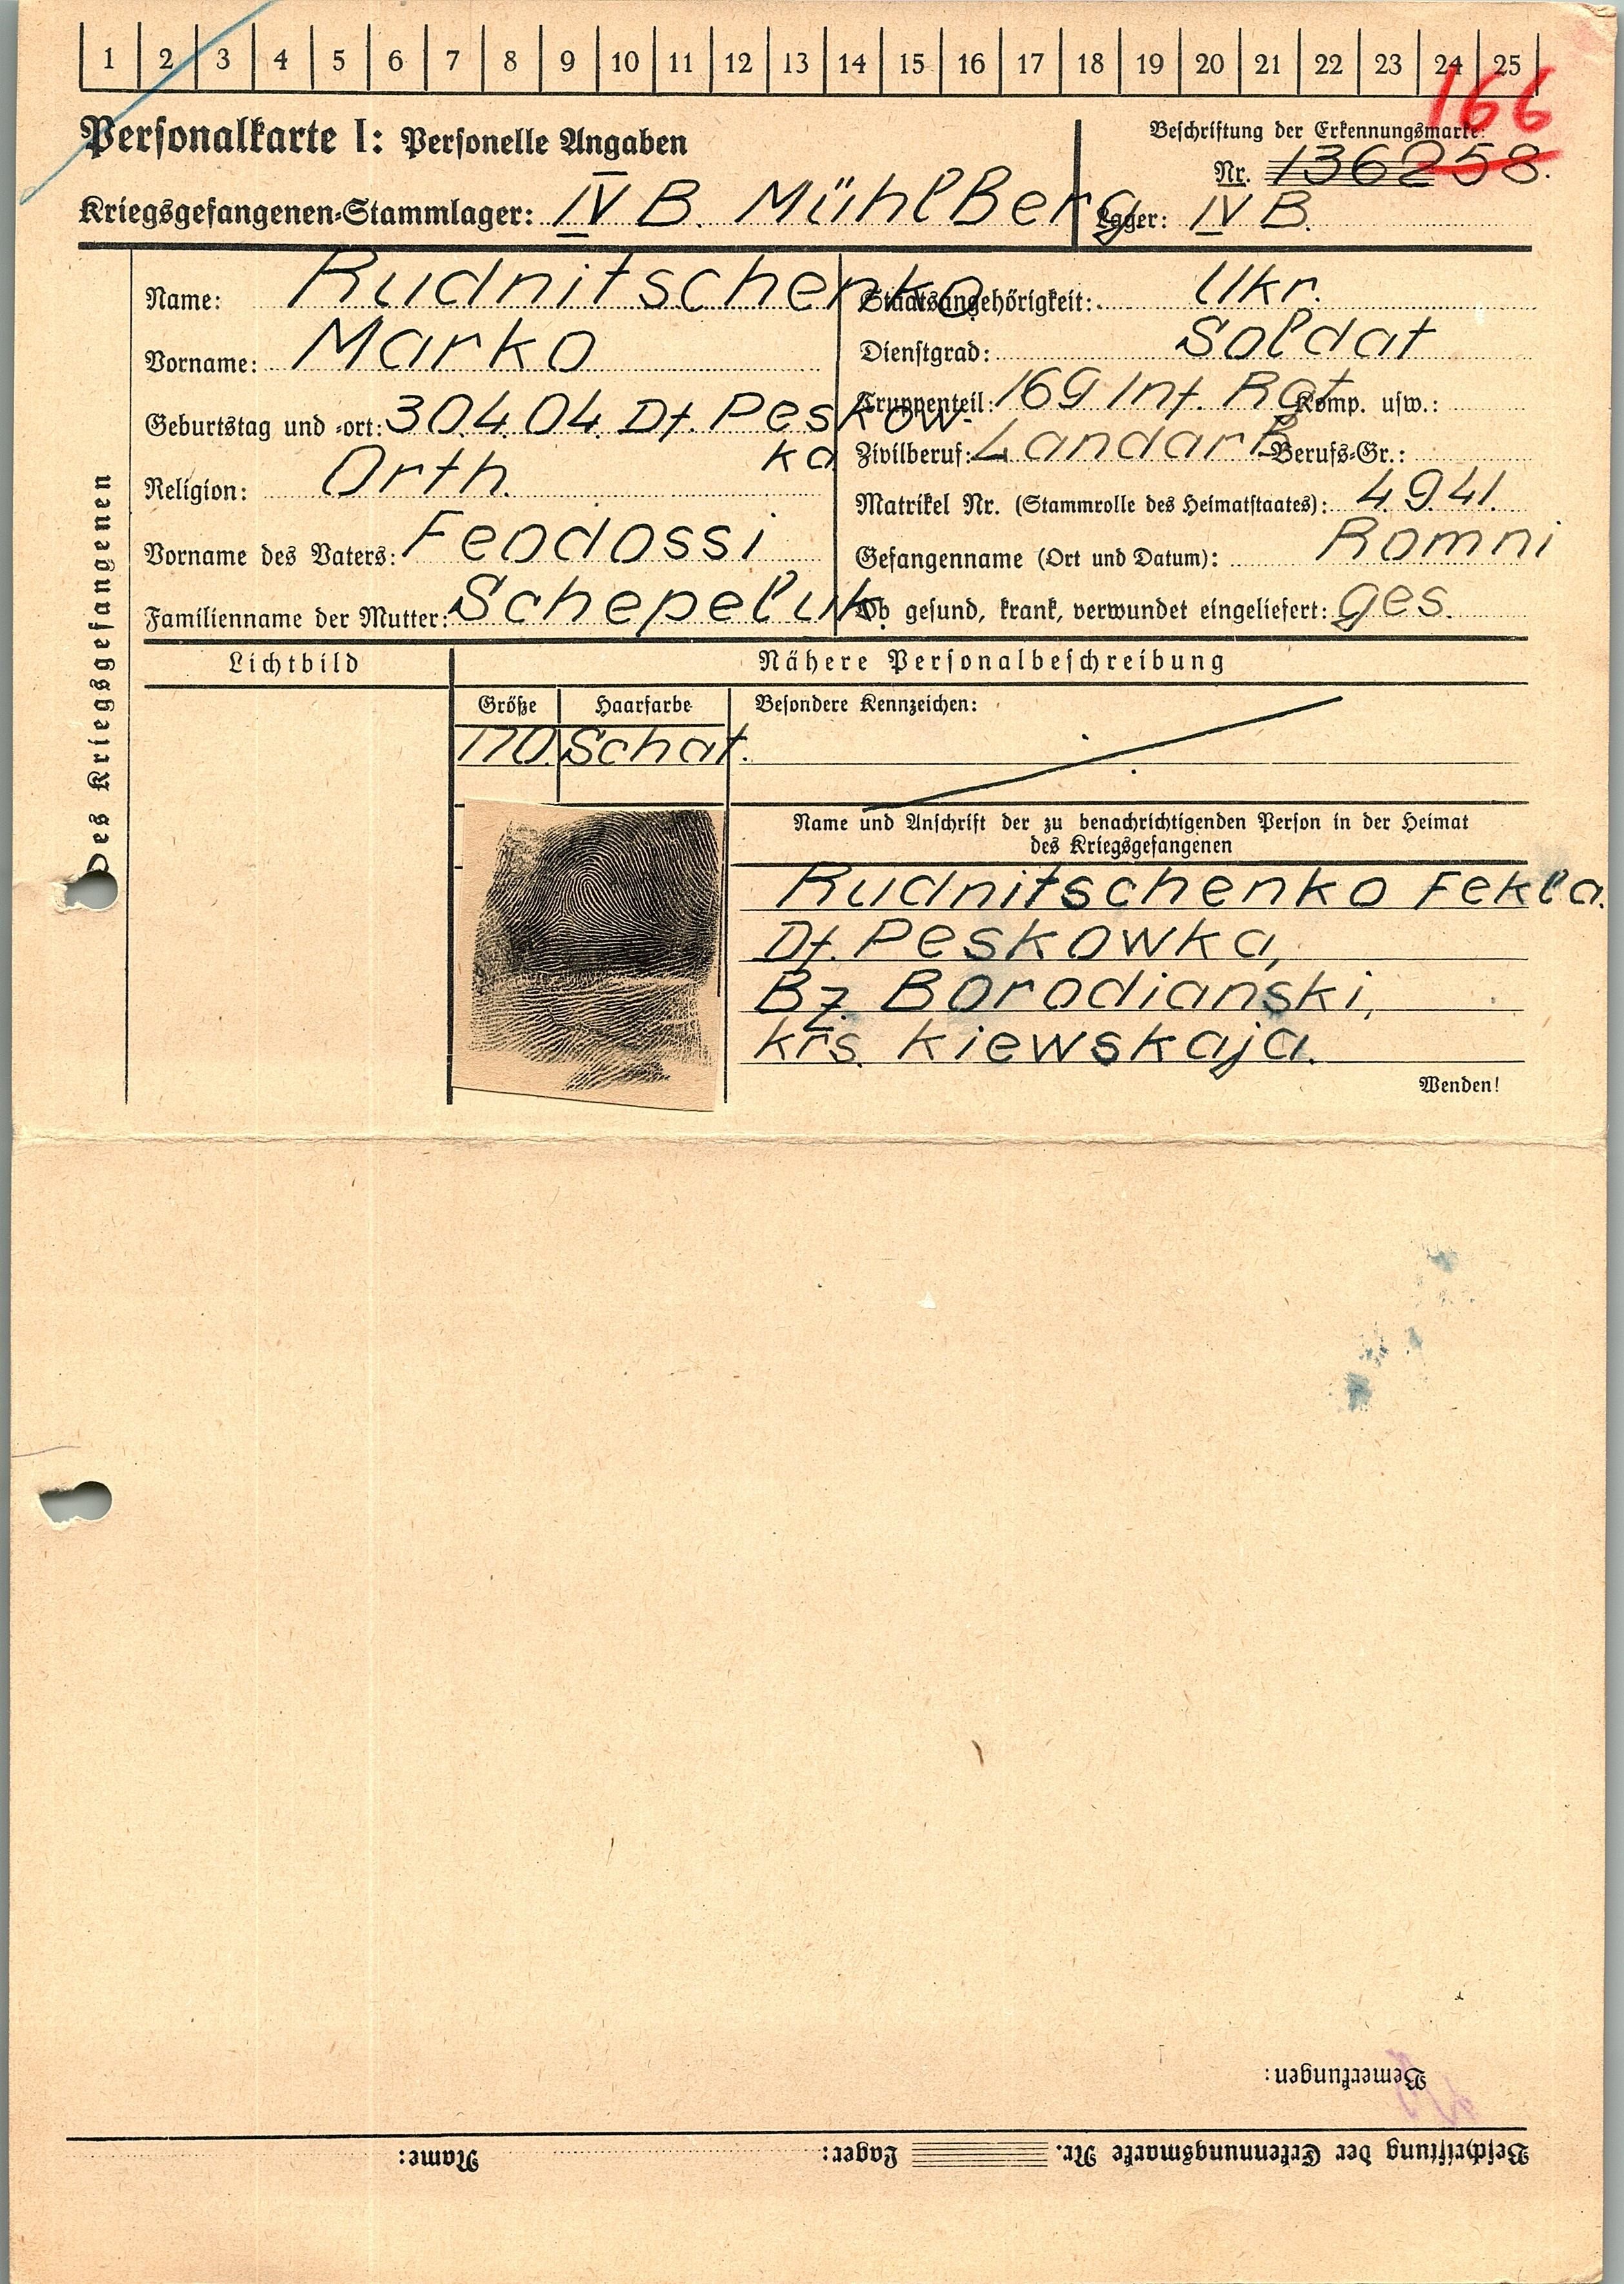 1 2 3 4 5 6 7 8 9 10 11 12 13 14 15 16 17 18 19 20 21 22 23 24 25
166
Personalkarte I: Personelle Angaben
Beschriftung der Erkennungsmarke:
Nr. 136258.
Kriegsgefangenen-Stammlager: IV B. MühlBerg
Lager: IV B.
Des Kriegsgefangenen
Name: Rudnitschenko
Vorname: Marko
Geburtstag und -ort: 30.4.04. Df. Peskow-
ka
Religion: Orth.
Vorname des Vaters: Feodossi
Familienname der Mutter: Schepeluk.
Staatsangehörigkeit: Ukr.
Dienstgrad: Soldat
Truppenteil: 169 Inf. Rgt. Komp. usw.:
Zivilberuf: LandarB. Berufs-Gr.:
Matrikel Nr. (Stammrolle des Heimatstaates): 4.9.41.
Gefangenname (Ort und Datum): Romni
Ob gesund, krank, verwundet eingeliefert: ges.
Lichtbild
Nähere Personalbeschreibung
Größe Haarfarbe Besondere Kennzeichen:
170. Schat.
Name und Anschrift der zu benachrichtigenden Person in der Heimat
des Kriegsgefangenen
Rudnitschenko Fekla.
Df. Peskowka,
Bz. Borodianski,
krs. Kiewskaja.
Wenden!
Bemerkungen:
Beschriftung der Erkennungsmarke Nr. Lager: Name: